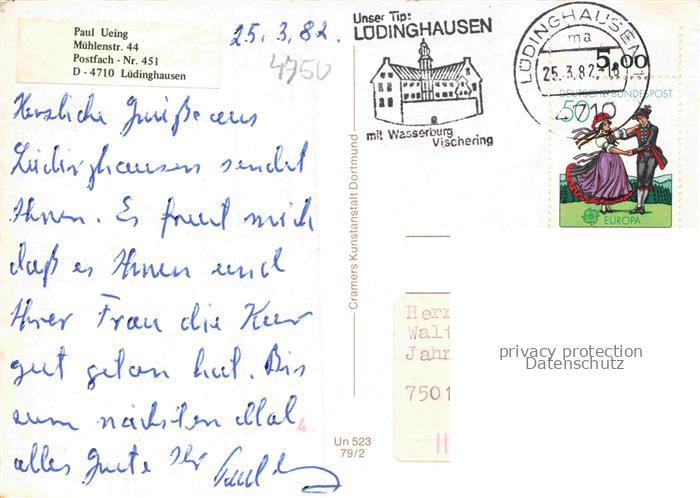 Paul Ueing
Mühlenstr. 44
Postfach - Nr. 451
D - 4710 Lüdinghausen
25. 3. 82.
4750
Unser Tip:
LÜDINGHAUSEN
mit Wasserburg
Vischering
LÜDINGHAUSEN 1
ma
25.3.82-18
4710
5,00
DEUTSCHE BUNDESPOST
50
EUROPA
Herzliche Grüße aus
Lüdinghausen sendet
Ihnen. Es freut mich
daß es Ihnen und
Ihrer Frau die Kur
gut getan hat. Bis
zum nächsten Mal
alles Gute Ihr
Cramers Kunstanstalt Dortmund
Un 523
79/2
Herr
Walt
Jahn
7501
privacy protection
Datenschutz